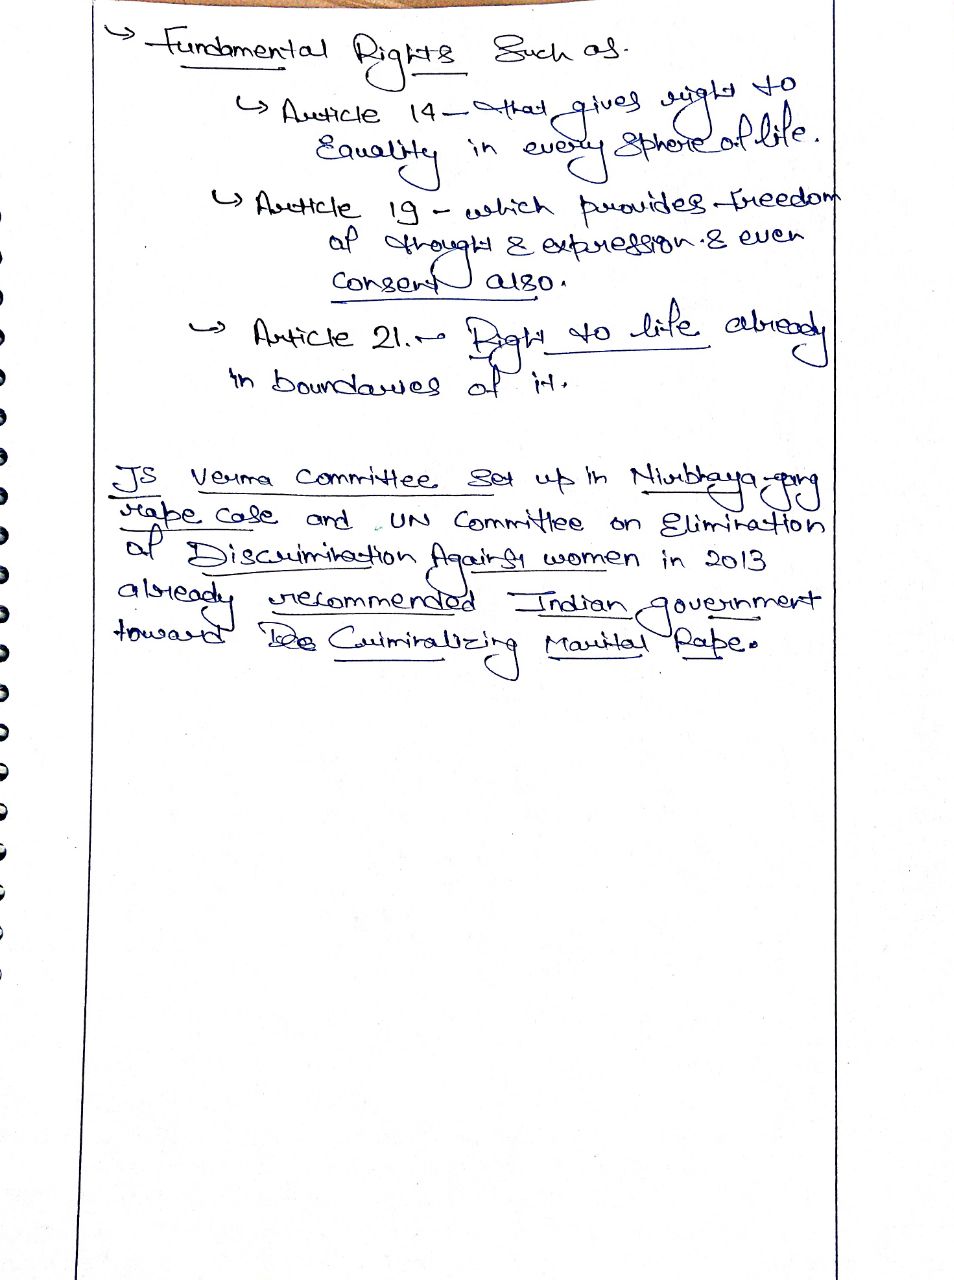 ↪ Fundamental Rights Such as.
↪ Article 14 - that gives right to
Equality in every Sphere of life.
↪ Article 19 - which provides freedom
of thought & expression. & even
Consent also.
↪ Article 21. - Right to life already
in boundaries of it.
JS Verma Committee Set up in Nirbhaya gang
rape case and UN Committee on Elimination
of Discrimination Against women in 2013
already recommended Indian government
toward Criminalizing Marital Rape.